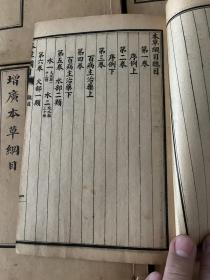 本草綱目總目
第一卷
序例上
第二卷
序例下
第三卷
百病主治藥上
第四卷
百病主治藥下
第五卷 水部二類
水一 水二
第六卷 火部一類
增廣本草綱目